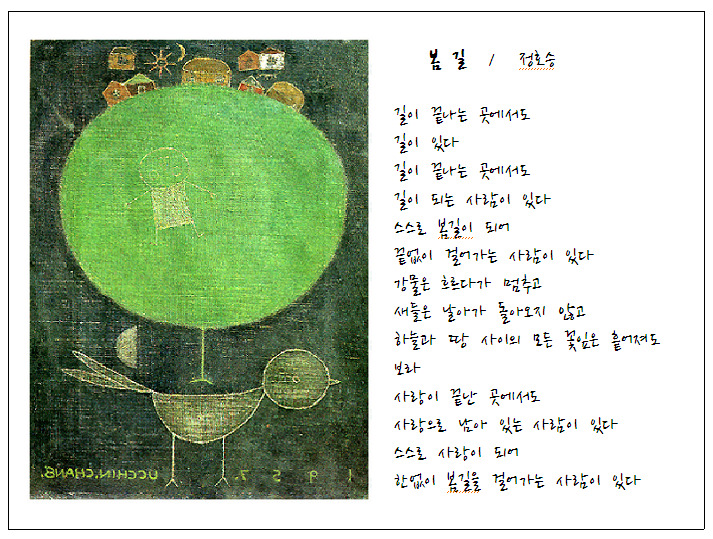 봄 길 / 정호승
길이 끝나는 곳에서도
길이 있다
길이 끝나는 곳에서도
길이 되는 사람이 있다
스스로 봄길이 되어
끝없이 걸어가는 사람이 있다
강물은 흐르다가 멈추고
새들은 날아가 돌아오지 않고
하늘과 땅 사이의 모든 꽃잎은 흩어져도
보라
사랑이 끝난 곳에서도
사랑으로 남아 있는 사람이 있다
스스로 사랑이 되어
한없이 봄길을 걸어가는 사람이 있다
UCCHIN.CHANG. 1957.